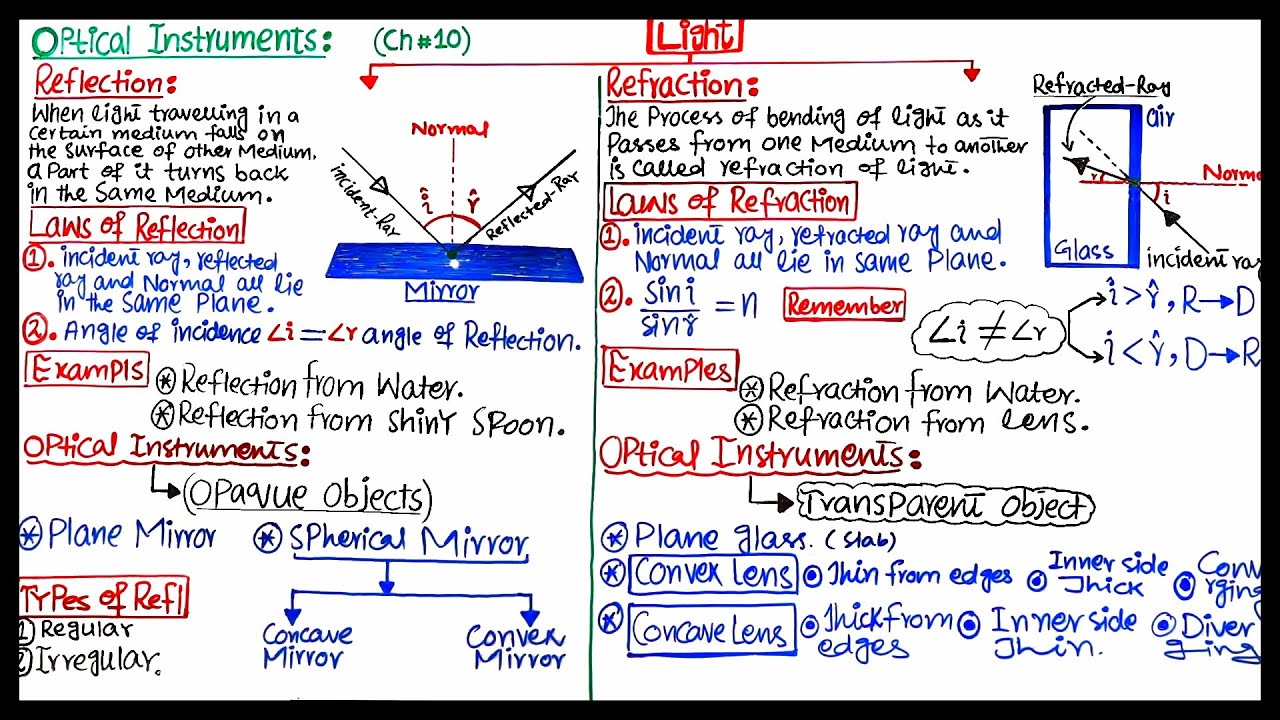 Optical Instruments: (Ch#10)
Light
Reflection:
When light travelling in a
certain medium falls on
the surface of other Medium,
a Part of it turns back
in the Same Medium.
Normal
incident-Ray
î
r̂
Reflected-Ray
Mirror
Laws of Reflection
1. incident ray, reflected
ray and Normal all lie
in the Same Plane.
2. Angle of incidence ∠i = ∠r angle of Reflection.
Exampls
* Reflection from Water.
* Reflection from Shiny Spoon.
Optical Instruments:
(Opaque Objects)
* Plane Mirror
* Spherical Mirror
Concave
Mirror
Convex
Mirror
Types of Refl
1) Regular
2) Irregular.
Refraction:
The Process of bending of light as it
Passes from one Medium to another
is called refraction of light.
Refracted-Ray
air
Norma
r
i
Glass
incident ray
Laws of Refraction
1. incident ray, refracted ray and
Normal all lie in same Plane.
2. sin i / sin r̂ = n
Remember
∠i ≠ ∠r
î > r̂, R→D
î < r̂, D→R
Examples
* Refraction from Water.
* Refraction from lens.
Optical Instruments:
Transparent object
* Plane glass. (Slab)
* Convex lens
Thin from edges
Inner side
Thick
Conv
rging
* Concave Lens
Thick from
edges
Inner side
Thin.
Diver
ging